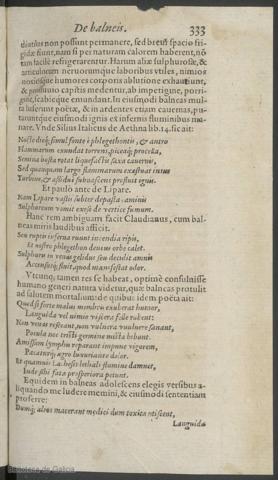 De balneis. 333
diutius non possunt permanere, sed breui spacio fri-
gidæ fiunt, nam si per naturam calorem haberent, nō
tam facilè refrigerarentur. Harum aliæ sulphurosæ, &
articulorum neruorumque laboribus vtiles, nimios
noxiosque humores corporis ablutione exhauriunt,
& pruriginoso capitis medentur, ab impetigine, porri-
gine, scabieque emundant. In eiusmodi balneas mul-
ta luserunt poëtæ, & in ardentes etiam cauernas, pu-
tantque eiusmodi ignis ex infernis fluminibus ma-
nare. Vnde Silius Italicus de Aethna lib. 14. sic ait:
Nocte dieq; simul fonte è phlegethontis, & antro
Flammarum exundat torrens, piceaq; procella,
Semina busta rotat liquefactis saxa cauernis,
Sed quanquam largo flammarum exæstuat intus
Turbine, & assiduè subnascens profluit ignis.
Et paulò ante de Lipare.
Nam Lipare vastis subter depasta caminis
Sulphureum vomit exesò de vertice fumum.
Hanc rem ambiguam facit Claudianus, cum bal-
neas miris laudibus afficit.
Seu ruptis inferna ruunt incendia ripis,
Et nostro phlegethon deuius orbe calet.
Sulphuris in venas gelidus seu decidit amnis
Accensusq; fluit, quod manifestat odor.
Vtcunq; tamen res se habeat, optimè consuluisse
humano generi natura videtur, quæ balneas protulit
ad salutem mortalium: de quibus idem poëta ait:
Quod si forte malus membris exuberat humor,
Languida vel nimio viscera felle rubent:
Non venas reserant, non vulnere vulnera sanant,
Pocula nec tristi germine mista bibunt.
Amissum lymphis reparant impune vigorem,
Pacaturq; ægro luxuriante dolor.
Equidem in balneas adolescens elegis versibus a-
liquando me ludere memini, & eiusmodi sententiam
proferre:
Languida